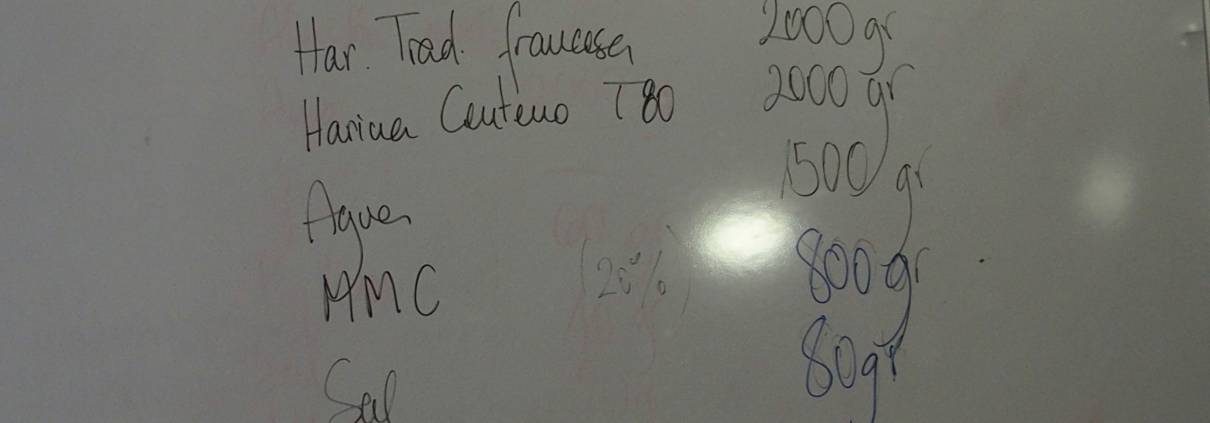 Har. Trad. francesa 2000 gr
Harina Centeno T80 2000 gr
Agua 1500 gr
MMC (20%) 800 gr
Sal 80gr